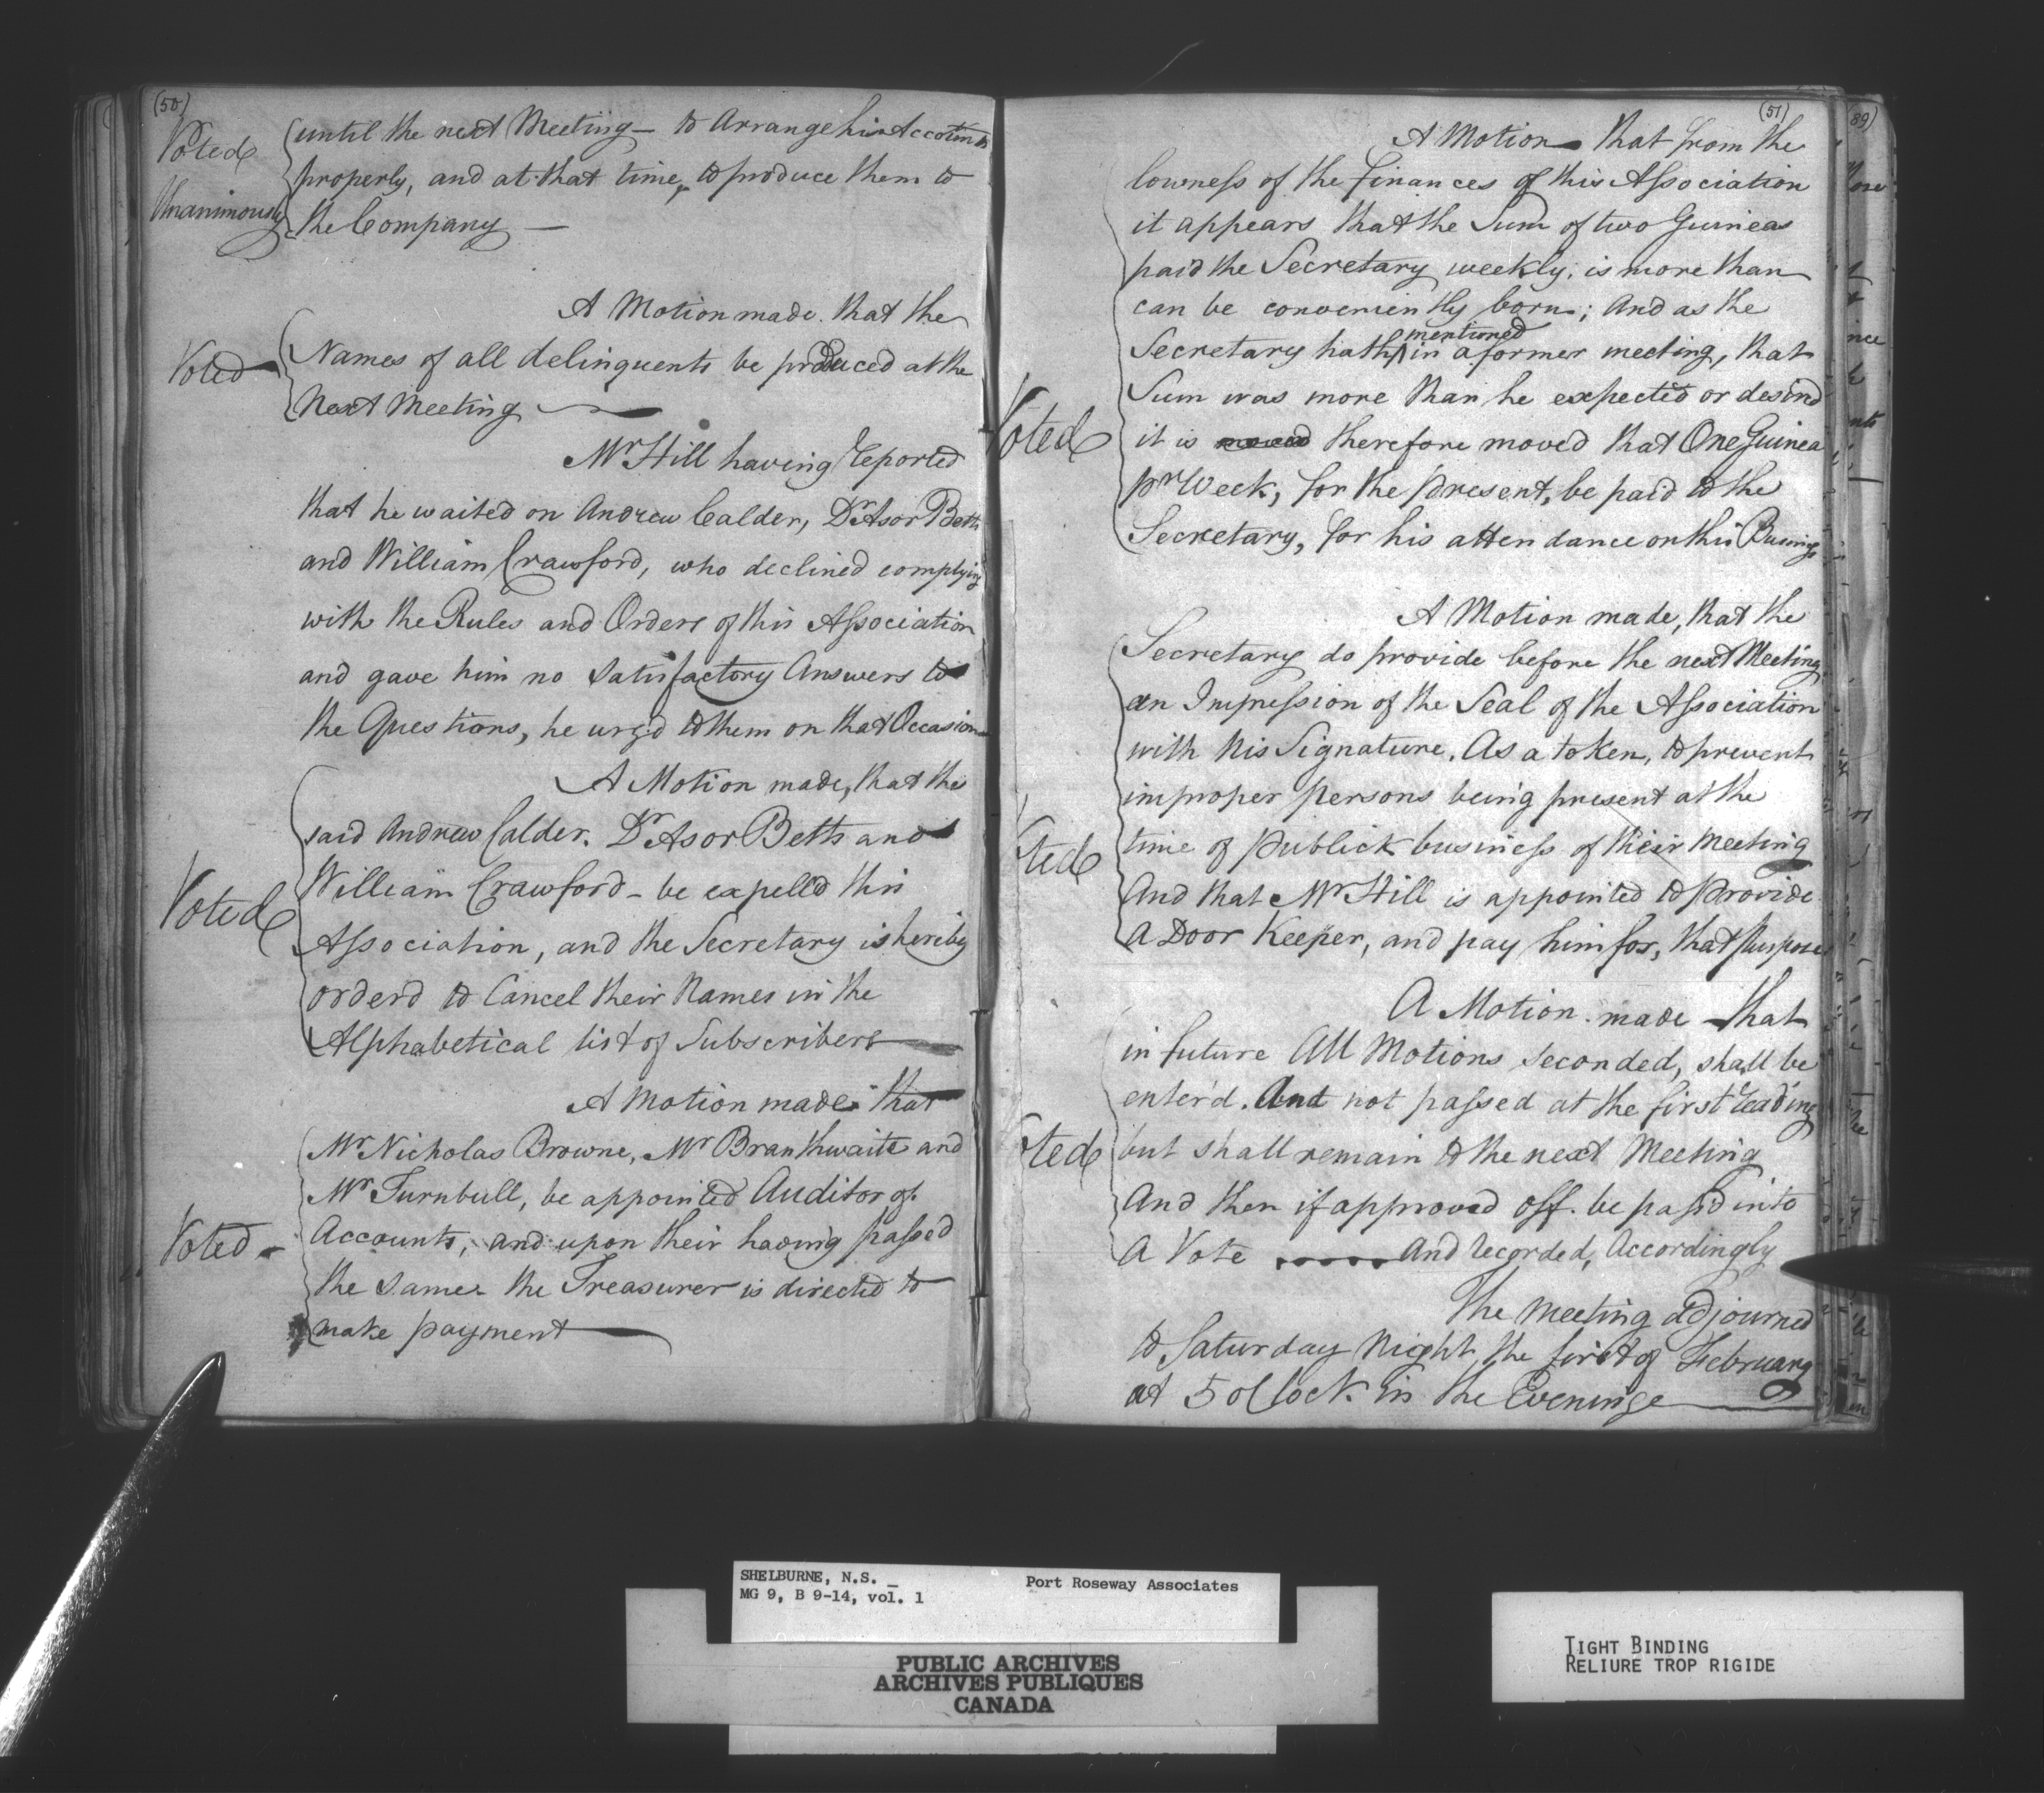 (50)
Voted
Unanimously
until the next Meeting — to Arrange his Accounts
properly, and at that time, to produce them to
the Company —
A Motion made. that the
Voted
Names of all delinquents be produced at the
Next Meeting
Mr Hill having reported
that he waited on Andrew Calder, Dr Asor Betts
and William Crawford, who declined complying
with the Rules and Orders of this Association
and gave him no Satisfactory Answers to
the Questions, he urg'd to them on that Occasion
A Motion made, that the
said Andrew Calder. Dr Asor Betts and
Voted
William Crawford - be expell'd this
Association, and the Secretary is hereby
orderd to Cancel their Names in the
Alphabetical list of Subscribers
A Motion made that
Mr Nicholas Browne, Mr Branthwaite and
Mr Turnbull, be appointed Auditor of
Voted
Accounts, and upon their having passed
the same the Treasurer is directed to
make payment
(51)
A Motion that from the
lowness of the finances of this Association
it appears that the Sum of two Guineas
paid the Secretary weekly, is more than
can be conveniently born; And as the
mentioned
Secretary hath in a former meeting, that
Sum was more than he expected or desir'd
Voted
it is moved therefore moved that One Guinea
pr Week, for the present, be paid to the
Secretary, for his attendance on this Business
A Motion made, that the
Secretary do provide before the next Meeting
an Impression of the Seal of the Association
with his Signature. As a token, to prevent
improper persons being present at the
ted
time of publick business of their meeting
And that Mr Hill is appointed to Provide
A Door Keeper, and pay him for, that purpose
A Motion. made that
in future All Motions seconded, shall be
enter'd. And not passed at the first reading
ted
but shall remain to the next Meeting
And then if approved off. be pass'd into
A Vote And recorded, Accordingly
The Meeting adjourned
to Saturday Night the first of February
at 5 oClock in the Evening
(89)
SHELBURNE, N.S. _
Port Roseway Associates
MG 9, B 9-14, vol. 1
PUBLIC ARCHIVES
ARCHIVES PUBLIQUES
CANADA
TIGHT BINDING
RELIURE TROP RIGIDE